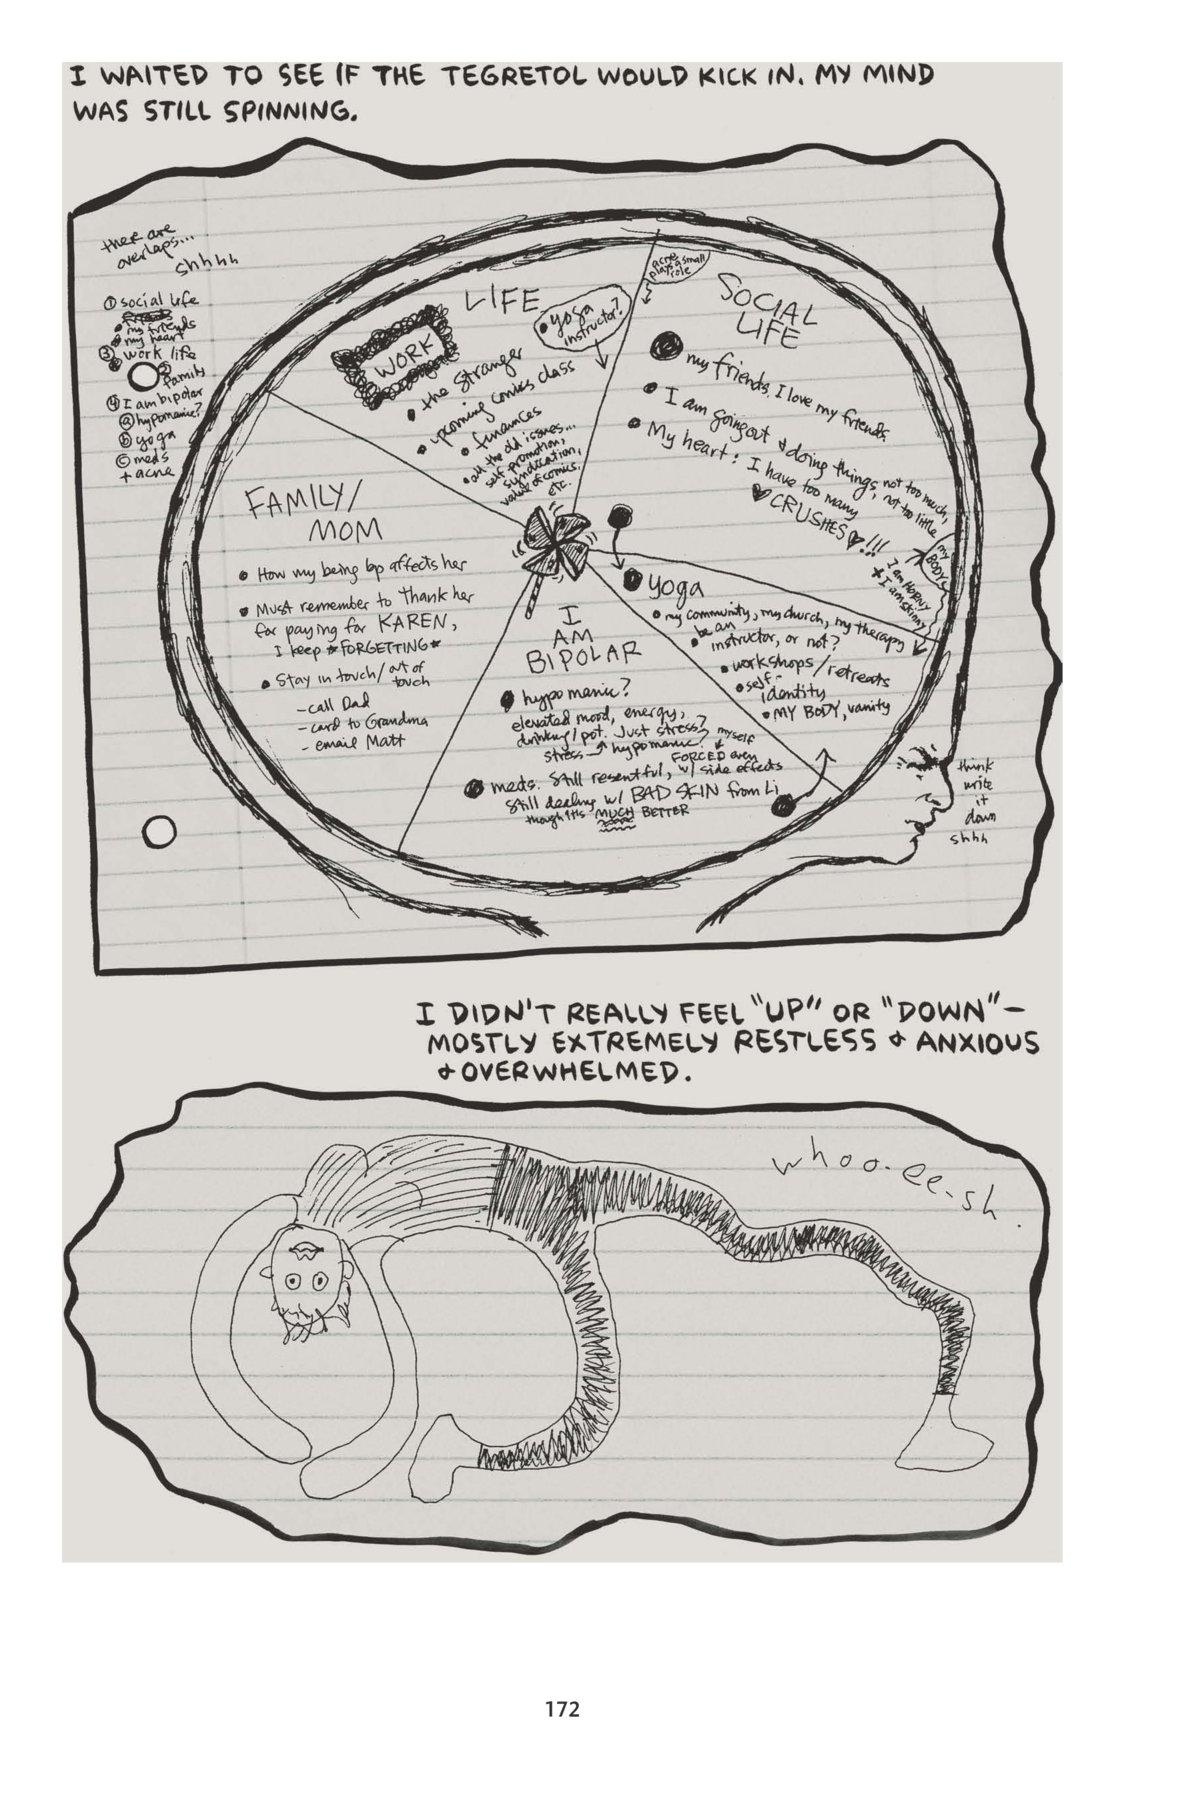 I WAITED TO SEE IF THE TEGRETOL WOULD KICK IN. MY MIND
WAS STILL SPINNING.
there are
overlaps...
shhhh
① social life
• my friends
• my heart
③ work life
② family
④ I am bipolar
ⓐ hypomanic?
ⓑ yoga
ⓒ meds
+ acne
WORK
LIFE
• yoga
instructor?
• the Stranger
• upcoming comics class
• finances
• all the old issues...
self promotion,
syndication,
value of comics.
etc.
acne
plays a small
role
SOCIAL
LIFE
• my friends. I love my friends.
• I am going out & doing things, not too much,
not too little
• My heart: I have too many
♥ CRUSHES ♥!!!
my
BODY
I am HORNY
+ I am skinny
FAMILY/
MOM
• How my being bp affects her
• Must remember to thank her
for paying for KAREN,
I keep *FORGETTING*
• Stay in touch/out of
touch
- call Dad
- card to Grandma
- email Matt
I
AM
BIPOLAR
• hypomanic?
elevated mood, energy,
drinking/pot. Just stress?
stress → hypomanic?
• meds. Still resentful, w/ side effects
myself
FORCED even
Still dealing w/ BAD SKIN from Li
though it's MUCH BETTER
• yoga
• my community, my church, my therapy
• be an
instructor, or not?
• workshops/retreats
• self-
identity
• MY BODY, vanity
think
write
it
down
shhh
I DIDN'T REALLY FEEL "UP" OR "DOWN"—
MOSTLY EXTREMELY RESTLESS & ANXIOUS
& OVERWHELMED.
whoo-ee-sh.
172